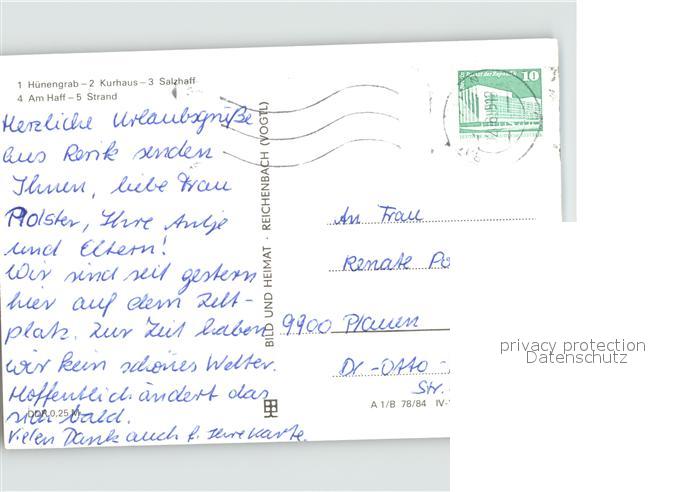 1 Hünengrab – 2 Kurhaus – 3 Salzhaff
4 Am Haff – 5 Strand
Herzliche Urlaubsgrüße
aus Rerik senden
Ihnen, liebe Frau
Polster, Ihre Antje
und Eltern!
Wir sind seit gestern
hier auf dem Zelt-
platz. Zur Zeit haben
wir kein schönes Wetter.
Hoffentlich ändert das
sich bald.
Vielen Dank auch f. Ihre Karte.
DDR 0,25 M
BILD UND HEIMAT · REICHENBACH (VOGTL)
Palast der Republik 10
An Frau
Renate Po
9900 Plauen
Dr.-Otto-
Str.
A 1/B 78/84 IV-
privacy protection
Datenschutz